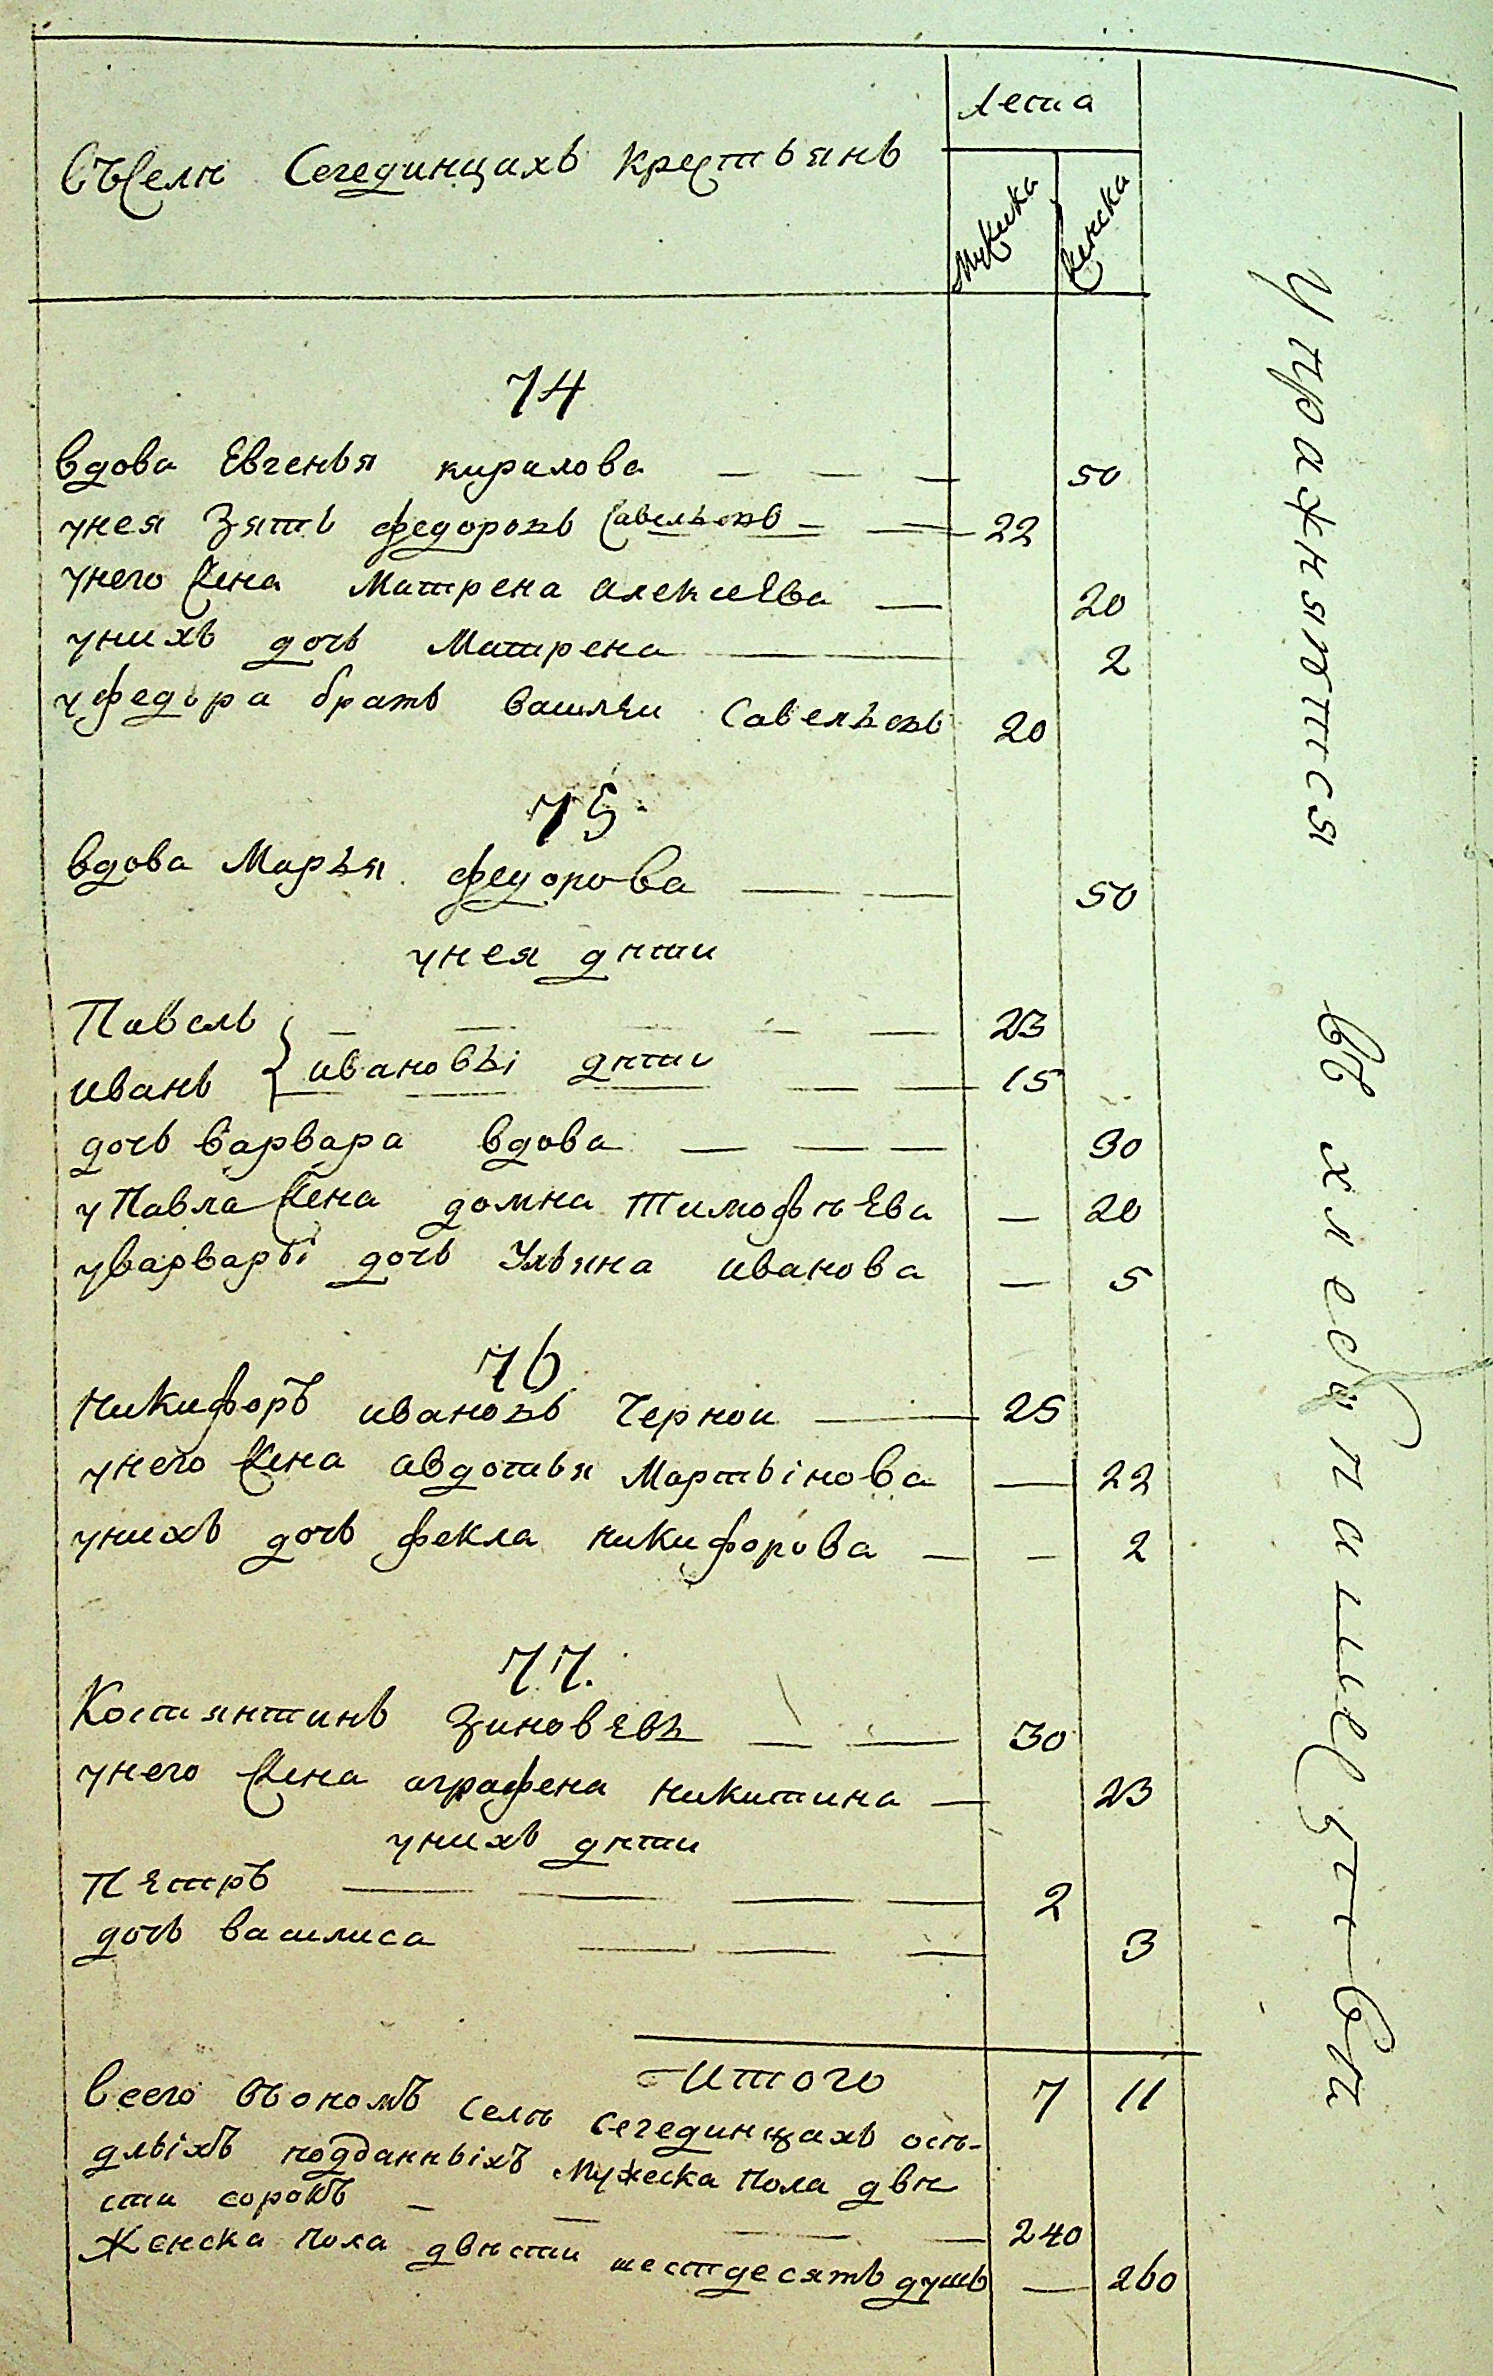 Лета
въселѣ Сегединцахъ крестьянъ
Мужска
женска
74
вдова Евгенья кирилова 50
унея зять федоровъ Савельевъ 22
унего жена Матрена алексиева 20
унихъ дочь Матрена 2
уфедора братъ василеи Савельевъ 20
75
вдова Марья федорова 50
унея дѣти
Павелъ 23
ивановы дѣти
иванъ 15
дочь варвара вдова 30
уПавла жена домна тимофѣева 20
уварвары дочь Ульяна иванова 5
76
никифоръ ивановъ Чернои 25
унего жена авдотья Мартынова 22
унихъ дочь фекла никифорова 2
77.
Костянтинъ зиновевъ 30
унего жена аграфена никитина 23
унихъ дѣти
Петръ 2
дочь василиса 3
Итого 7 11
всего въономъ селѣ сегединцахъ осѣ-
длыхъ подданныхъ Мужеска пола двѣ
сти сорокъ 240
Женска пола двѣсти шестдесятъ душъ 260
Упражняются въ хлебопашествѣ